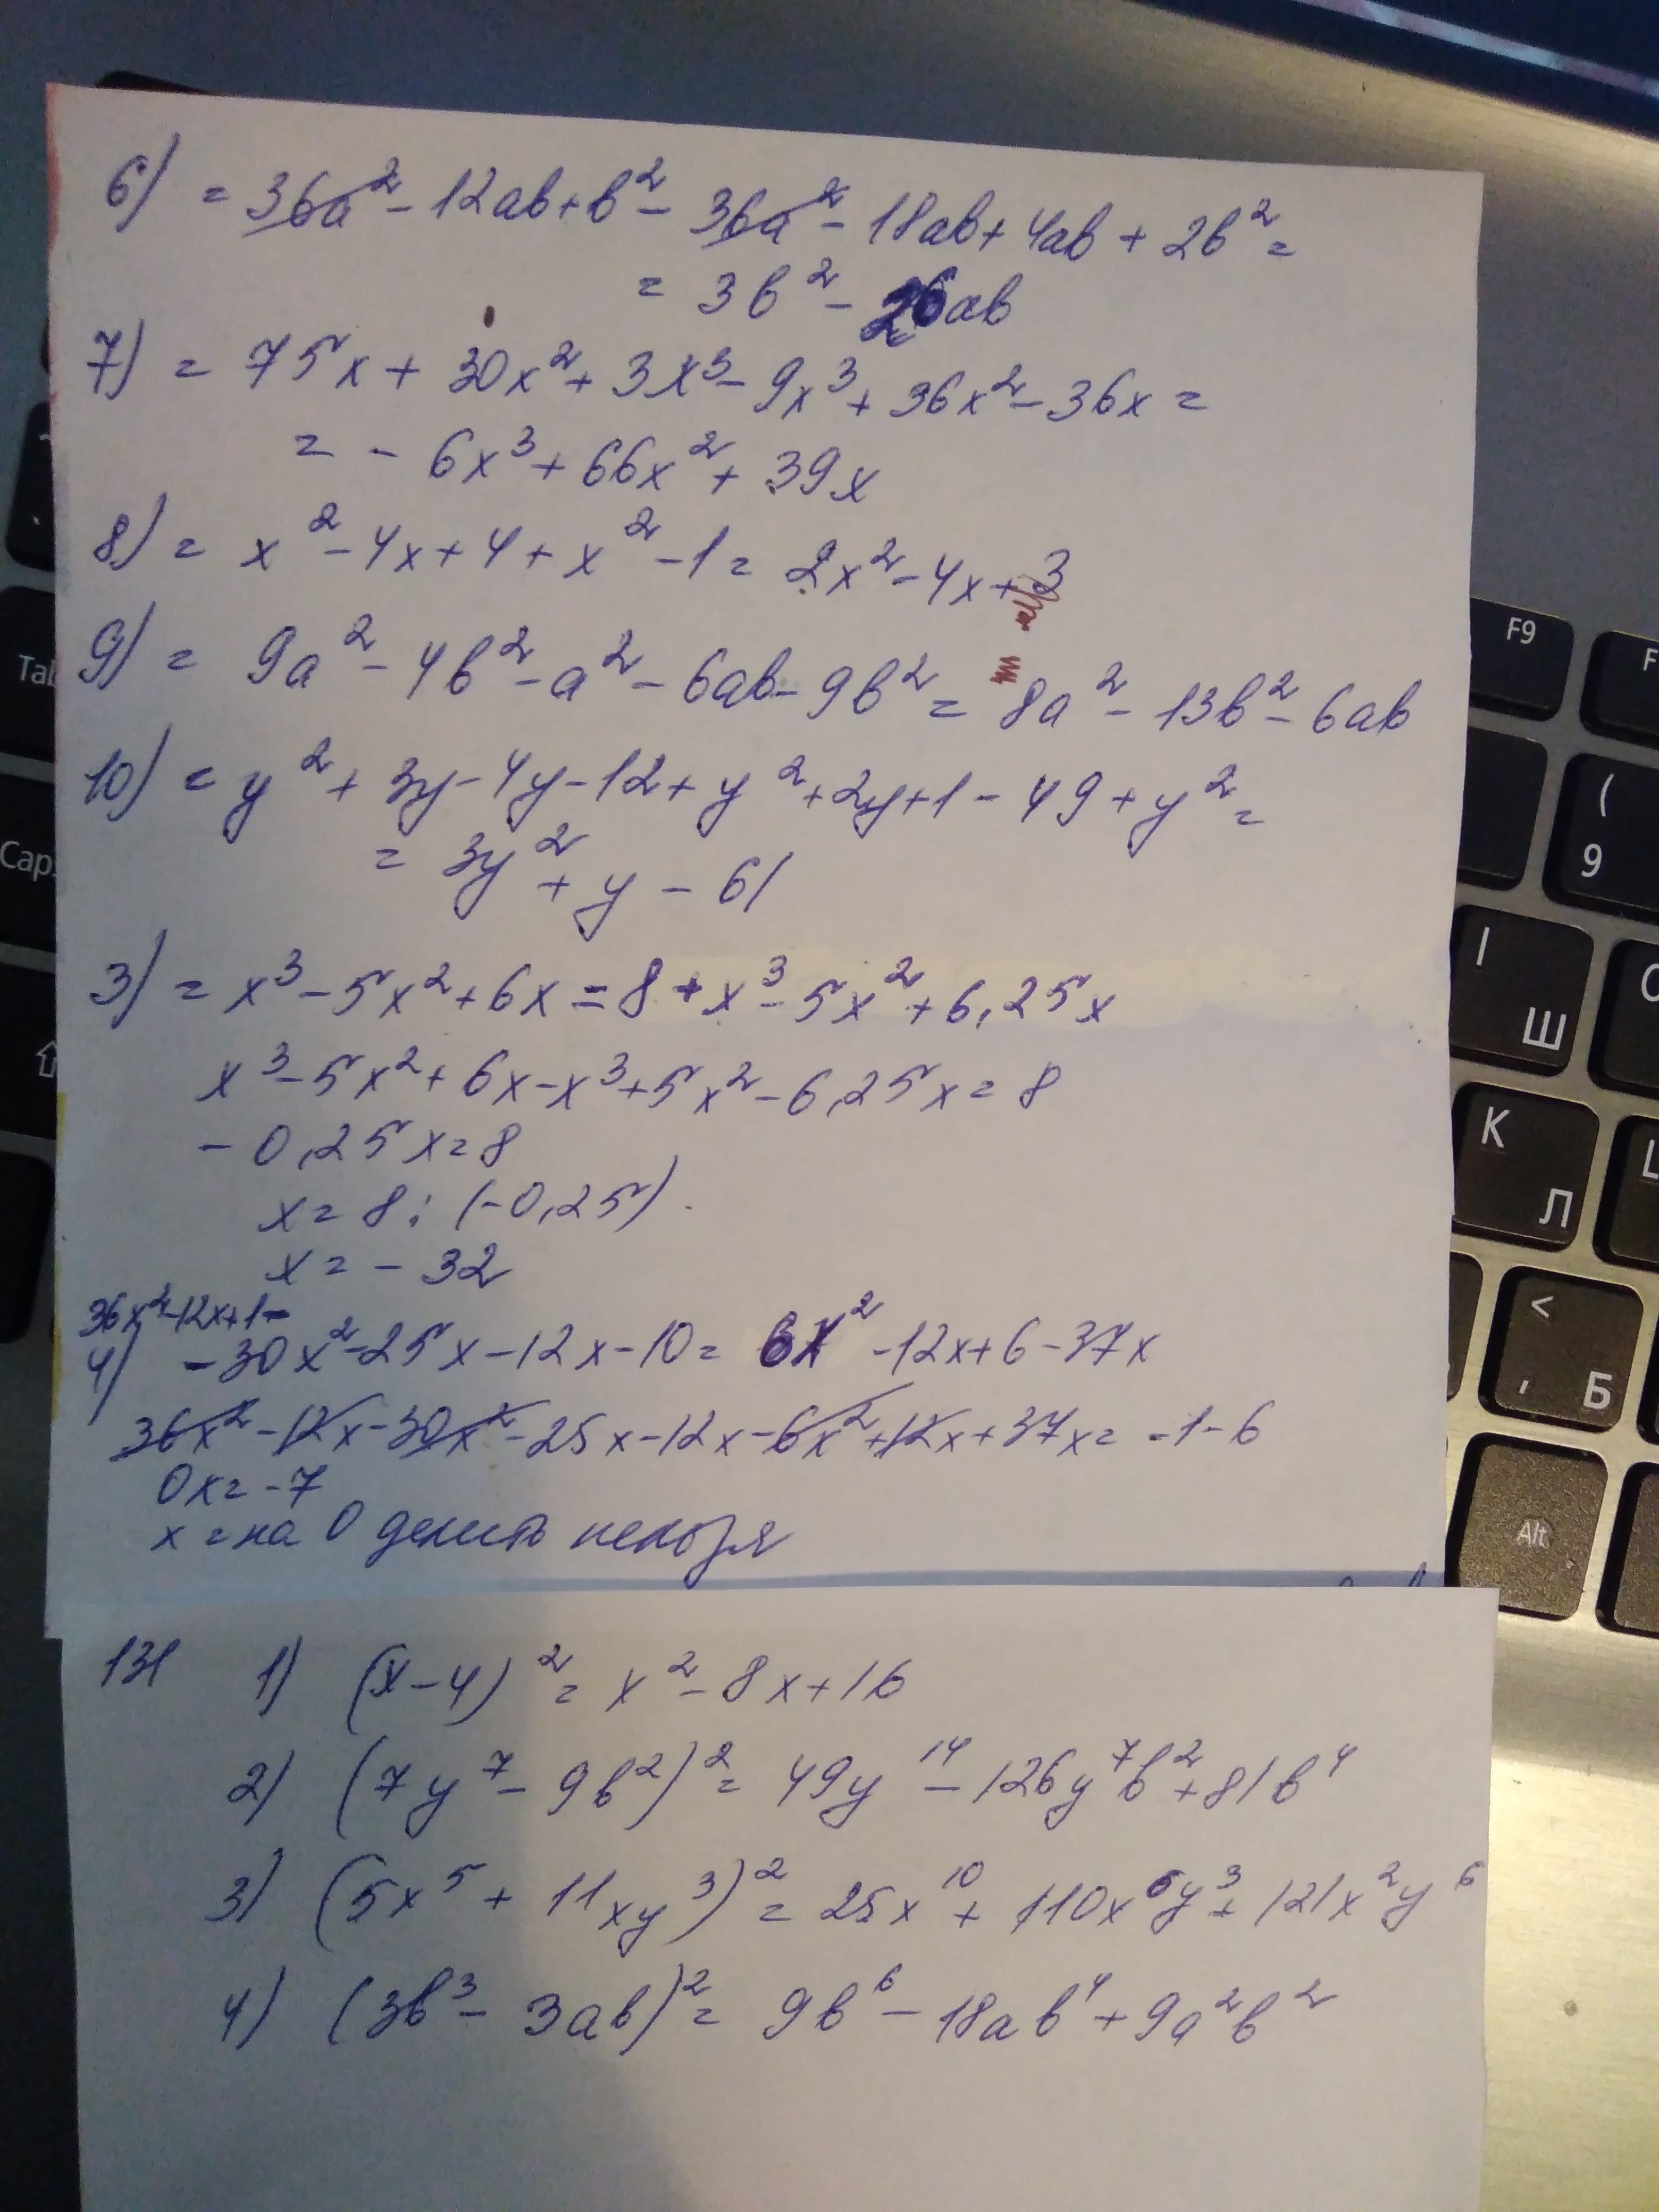 6) = 36a² - 12ab + b² - 36a² - 18ab + 4ab + 2b² =
= 3b² - 26ab
7) = 75x + 30x² + 3x³ - 9x³ + 36x² - 36x =
= - 6x³ + 66x² + 39x
8) = x² - 4x + 4 + x² - 1 = 2x² - 4x + 3
9) = 9a² - 4b² - a² - 6ab - 9b² = 8a² - 13b² - 6ab
10) = y² + 3y - 4y - 12 + y² + 2y + 1 - 49 + y² =
= 3y² + y - 61
3) = x³ - 5x² + 6x = 8 + x³ - 5x² + 6,25x
x³ - 5x² + 6x - x³ + 5x² - 6,25x = 8
- 0,25x = 8
x = 8 : (-0,25)
x = - 32
36x² - 12x + 1 -
4) - 30x² - 25x - 12x - 10 = 6x² - 12x + 6 - 37x
36x² - 12x - 30x² - 25x - 12x - 6x² + 12x + 37x = -1 - 6
0x = -7
x = на 0 делить нельзя
131 1) (x - 4)² = x² - 8x + 16
2) (7y⁷ - 9b²)² = 49y¹⁴ - 126y⁷b² + 81b⁴
3) (5x⁵ + 11xy³)² = 25x¹⁰ + 110x⁶y³ + 121x²y⁶
4) (3b³ - 3ab)² = 9b⁶ - 18ab⁴ + 9a²b²
Tab
Caps
F9
F
(
9
I
Ш
K
Л
<
,
Б
Alt